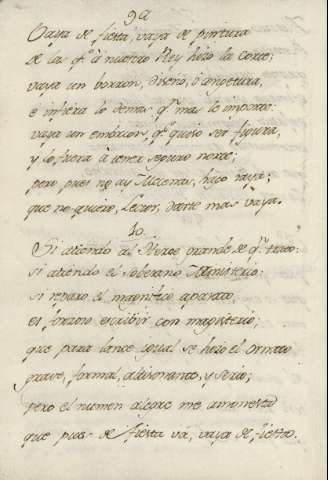 9a
Vaya de fiesta, vaya de pintura
de las qe. â nuestro Rey hizo la Corte;
vaya un borron, diseño, ô
e infiera lo demas qe. mas le importe:
vaya un embrion, qe. quiso ser figura,
y lo fuera â tener seguro norte;
pero pues no ay Mecenas, hago raya;
que no quiero, Lector, darte mas vaya.
10.
Si atiendo al Heroe grande de qn. trato:
si atiendo el soberano Ministerio:
si reparo el magnifico aparato,
es forzoso escribir con magisterio;
que para lance igual se hizo el ornato
grave, formal, altisonante, y serio;
pero el numen alegre me amonesta
que pues de fiesta vá, vaya de fiesta.